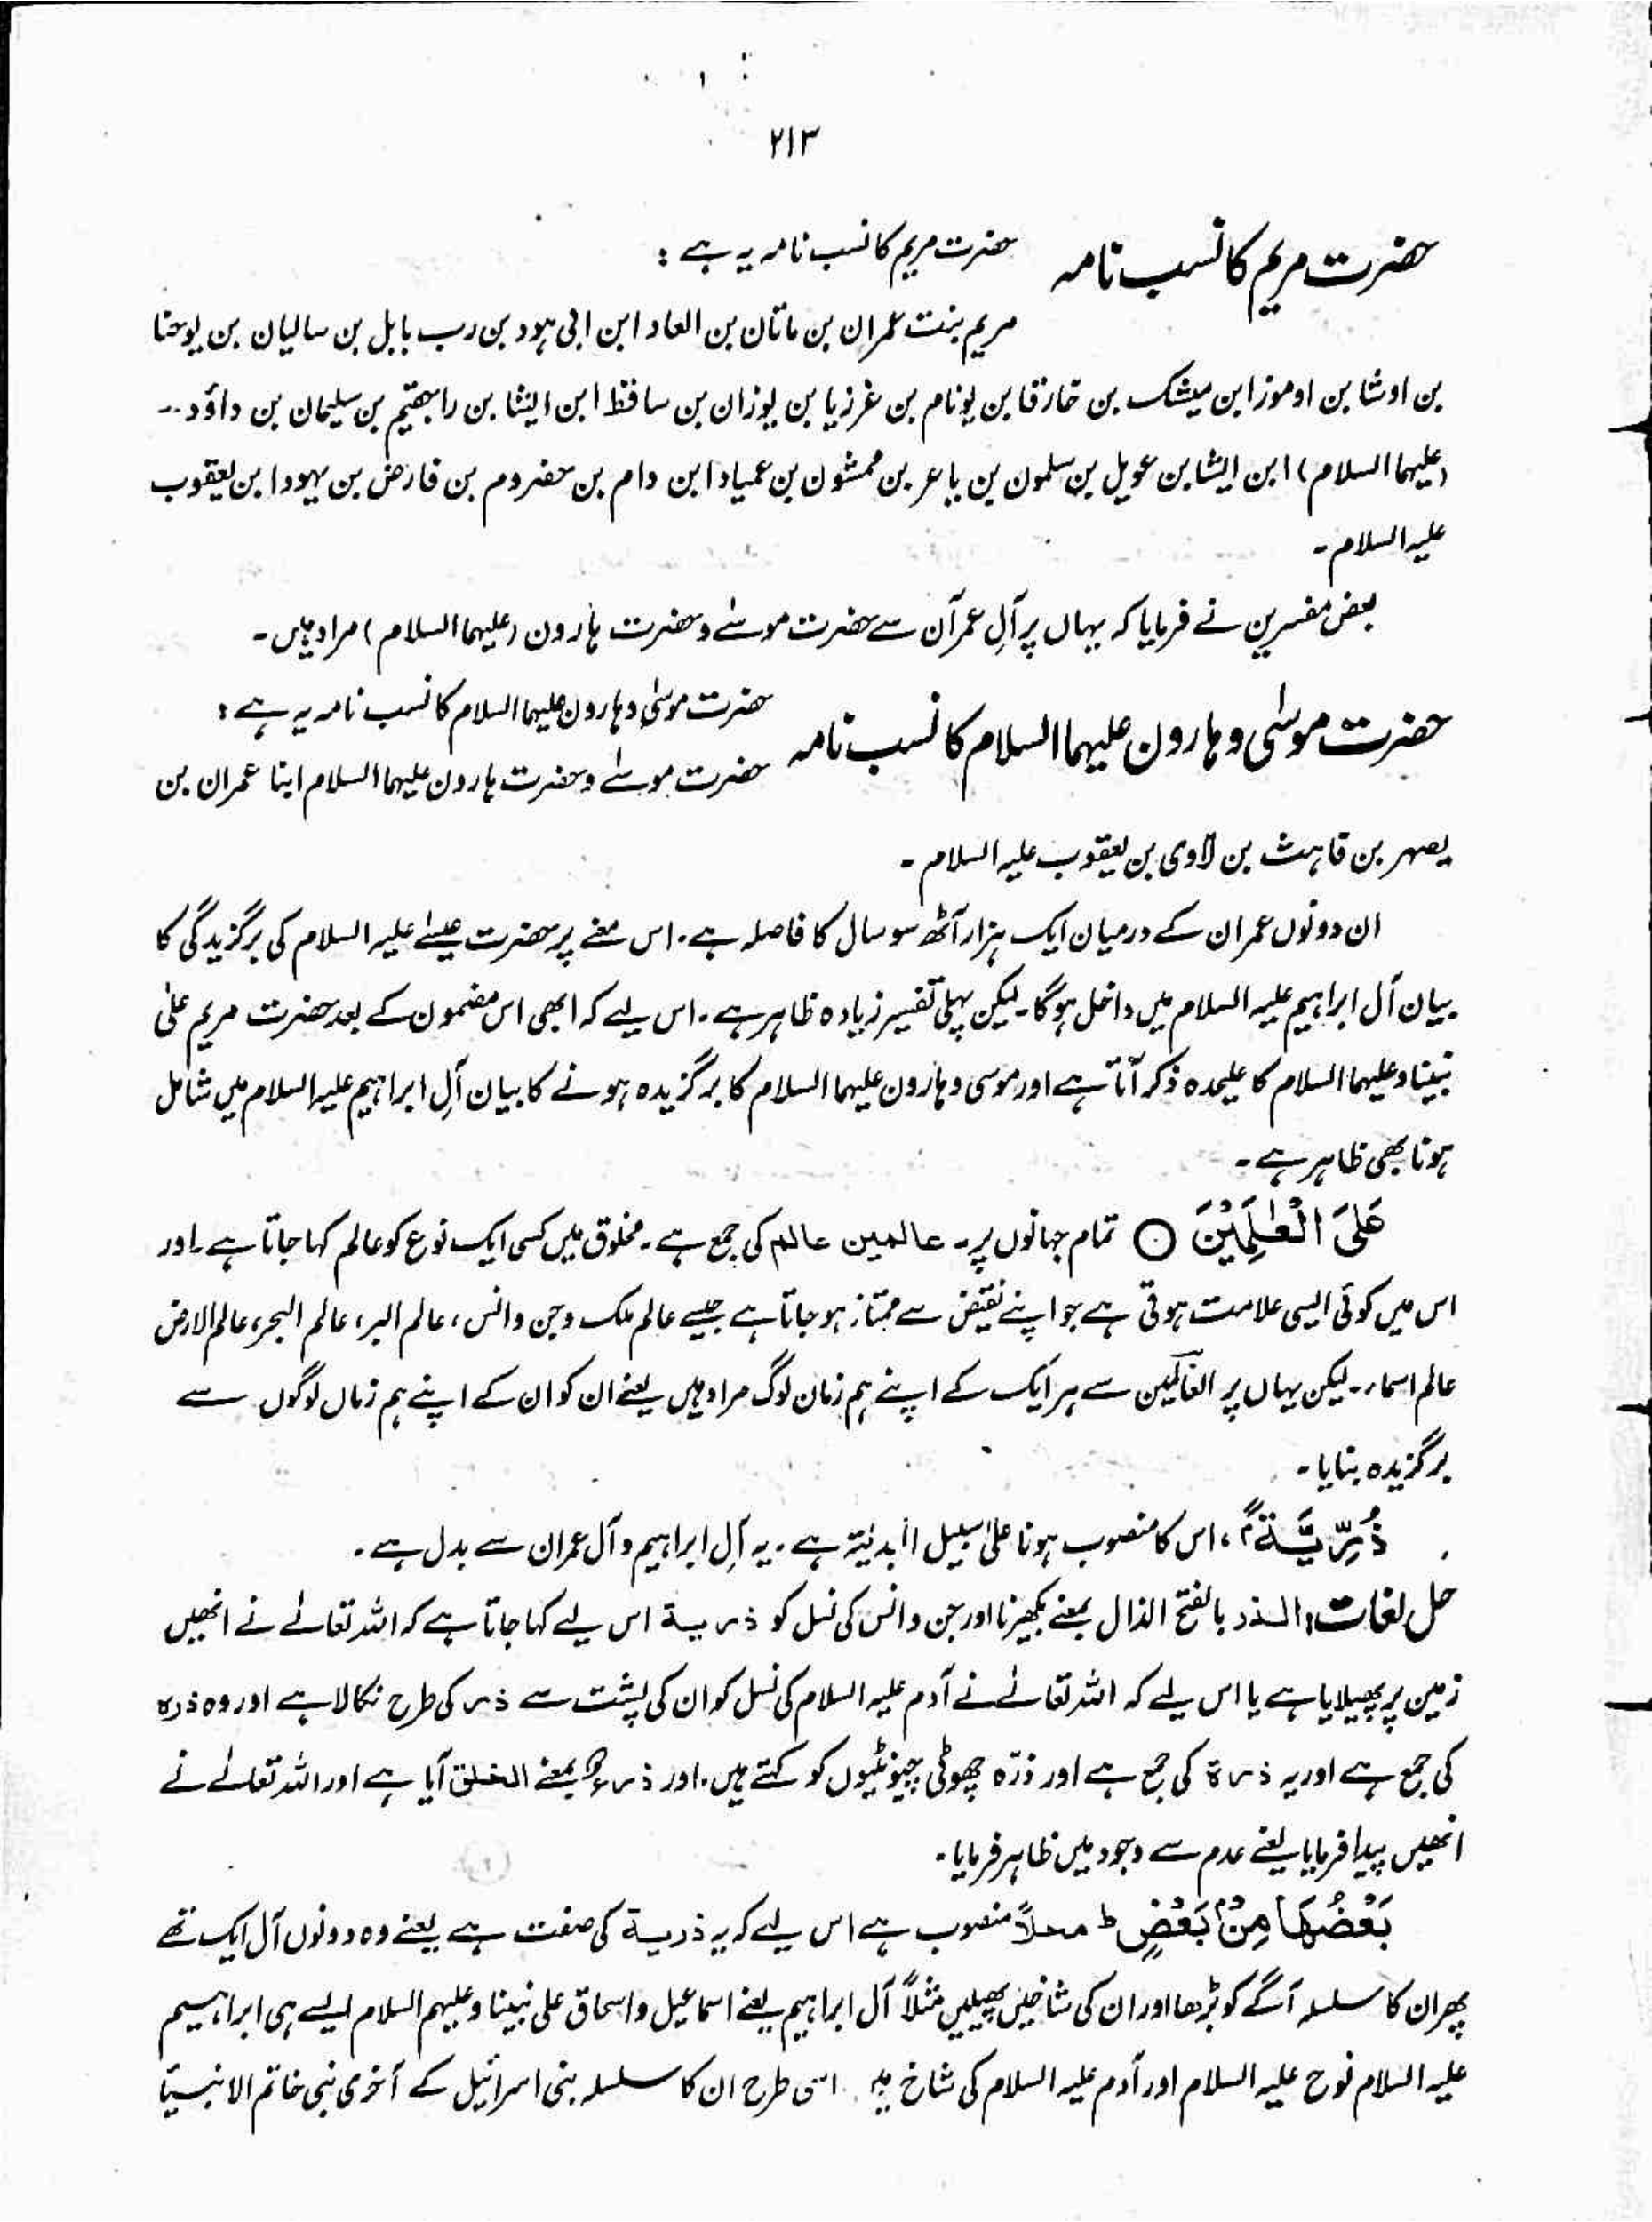 ۲۱۳
حضرت مریم کا نسب نامہ
حضرت مریم کا نسب نامہ یہ ہے :
مریم بنت عمران بن ماتان بن العاد ابن ابی ہود بن رب بابل بن سالیان بن یوحنا
بن اوشا بن اوموز ابن میشک بن خارقا بن یونام بن غرزیا بن یوزان بن ساقط ابن ایشا بن راجعیم بن سلیمان بن داؤد ۔۔
(علیہما السلام) ابن ایشا بن عویل بن سلمون بن یاعر بن ممشون بن عمیاد ابن دام بن حضروم بن فارض بن یہودا ابن یعقوب
علیہ السلام ۔
بعض مفسرین نے فرمایا کہ یہاں پر آلِ عمرآن سے حضرت موسےٰ و حضرت ہارون (علیہما السلام) مراد ہیں ۔
حضرت موسٰی و ہارون علیہما السلام کا نسب نامہ
حضرت موسیٰ و ہارون علیہما السلام کا نسب نامہ یہ ہے :
حضرت موسےٰ و حضرت ہارون علیہما السلام ابنا عمران بن
یصہر بن قاہث بن لاوی بن یعقوب علیہ السلام ۔
ان دونوں عمران کے درمیان ایک ہزار آٹھ سو سال کا فاصلہ ہے ۔ اس معنے پر حضرت عیسےٰ علیہ السلام کی برگزیدگی کا
بیان آل ابراہیم علیہ السلام میں داخل ہوگا ۔ لیکن پہلی تفسیر زیادہ ظاہر ہے ۔ اس لیے کہ ابھی اس مضمون کے بعد حضرت مریم علیٰ
نبینا و علیہما السلام کا علیحدہ ذکر آتا ہے اور موسی و ہارون علیہما السلام کا برگزیدہ ہونے کا بیان آلِ ابراہیم علیہ السلام میں شامل
ہونا بھی ظاہر ہے ۔
عَلَی الْعٰلَمِیْنَ ○ تمام جہانوں پر ۔ عالمین عالم کی جمع ہے ۔ مخلوق میں کسی ایک نوع کو عالم کہا جاتا ہے ۔ اور
اس میں کوئی ایسی علامت ہوتی ہے جو اپنے نقیض سے ممتاز ہو جاتا ہے جیسے عالم ملک و جن و انس ، عالم البر ، عالم البحر ، عالم الارض
عالم اسماء ۔ لیکن یہاں پر العٰلمین سے ہر ایک کے اپنے ہم زمان لوگ مراد ہیں یعنے ان کو ان کے اپنے ہم زماں لوگوں سے
برگزیدہ بنایا ۔
ذُرِّیَّةً ، اس کا منصوب ہونا علیٰ سبیل البدلیۃ ہے ۔ یہ آلِ ابراہیم و آل عمران سے بدل ہے ۔
حل لغات : الذر بالفتح الذال بمعنے بکھیرنا اور جن و انس کی نسل کو ذریة اس لیے کہا جاتا ہے کہ اللہ تعالےٰ نے انھیں
زمین پر پھیلایا ہے یا اس لیے کہ اللہ تعالےٰ نے آدم علیہ السلام کی نسل کو ان کی پشت سے ذر کی طرح نکالا ہے اور وہ ذرہ
کی جمع ہے اور یہ ذرة کی جمع ہے اور ذرّہ چھوٹی چیونٹیوں کو کہتے ہیں ۔ اور ذرء بمعنے الخلق آیا ہے اور اللہ تعالےٰ نے
انھیں پیدا فرمایا یعنے عدم سے وجود میں ظاہر فرمایا ۔
بَعْضُهَا مِنْۢ بَعْضٍ ط محلاً منصوب ہے اس لیے کہ یہ ذریة کی صفت ہے یعنے وہ دونوں آل ایک تھے
پھر ان کا سلسلہ آگے کو بڑھا اور ان کی شاخیں پھیلیں مثلاً آل ابراہیم یعنے اسماعیل و اسحاق علی نبینا و علیہم السلام ایسے ہی ابراہیم
علیہ السلام نوح علیہ السلام اور آدم علیہ السلام کی شاخ اسی طرح ان کا سلسلہ بنی اسرائیل کے آخری نبی خاتم الانبیاً